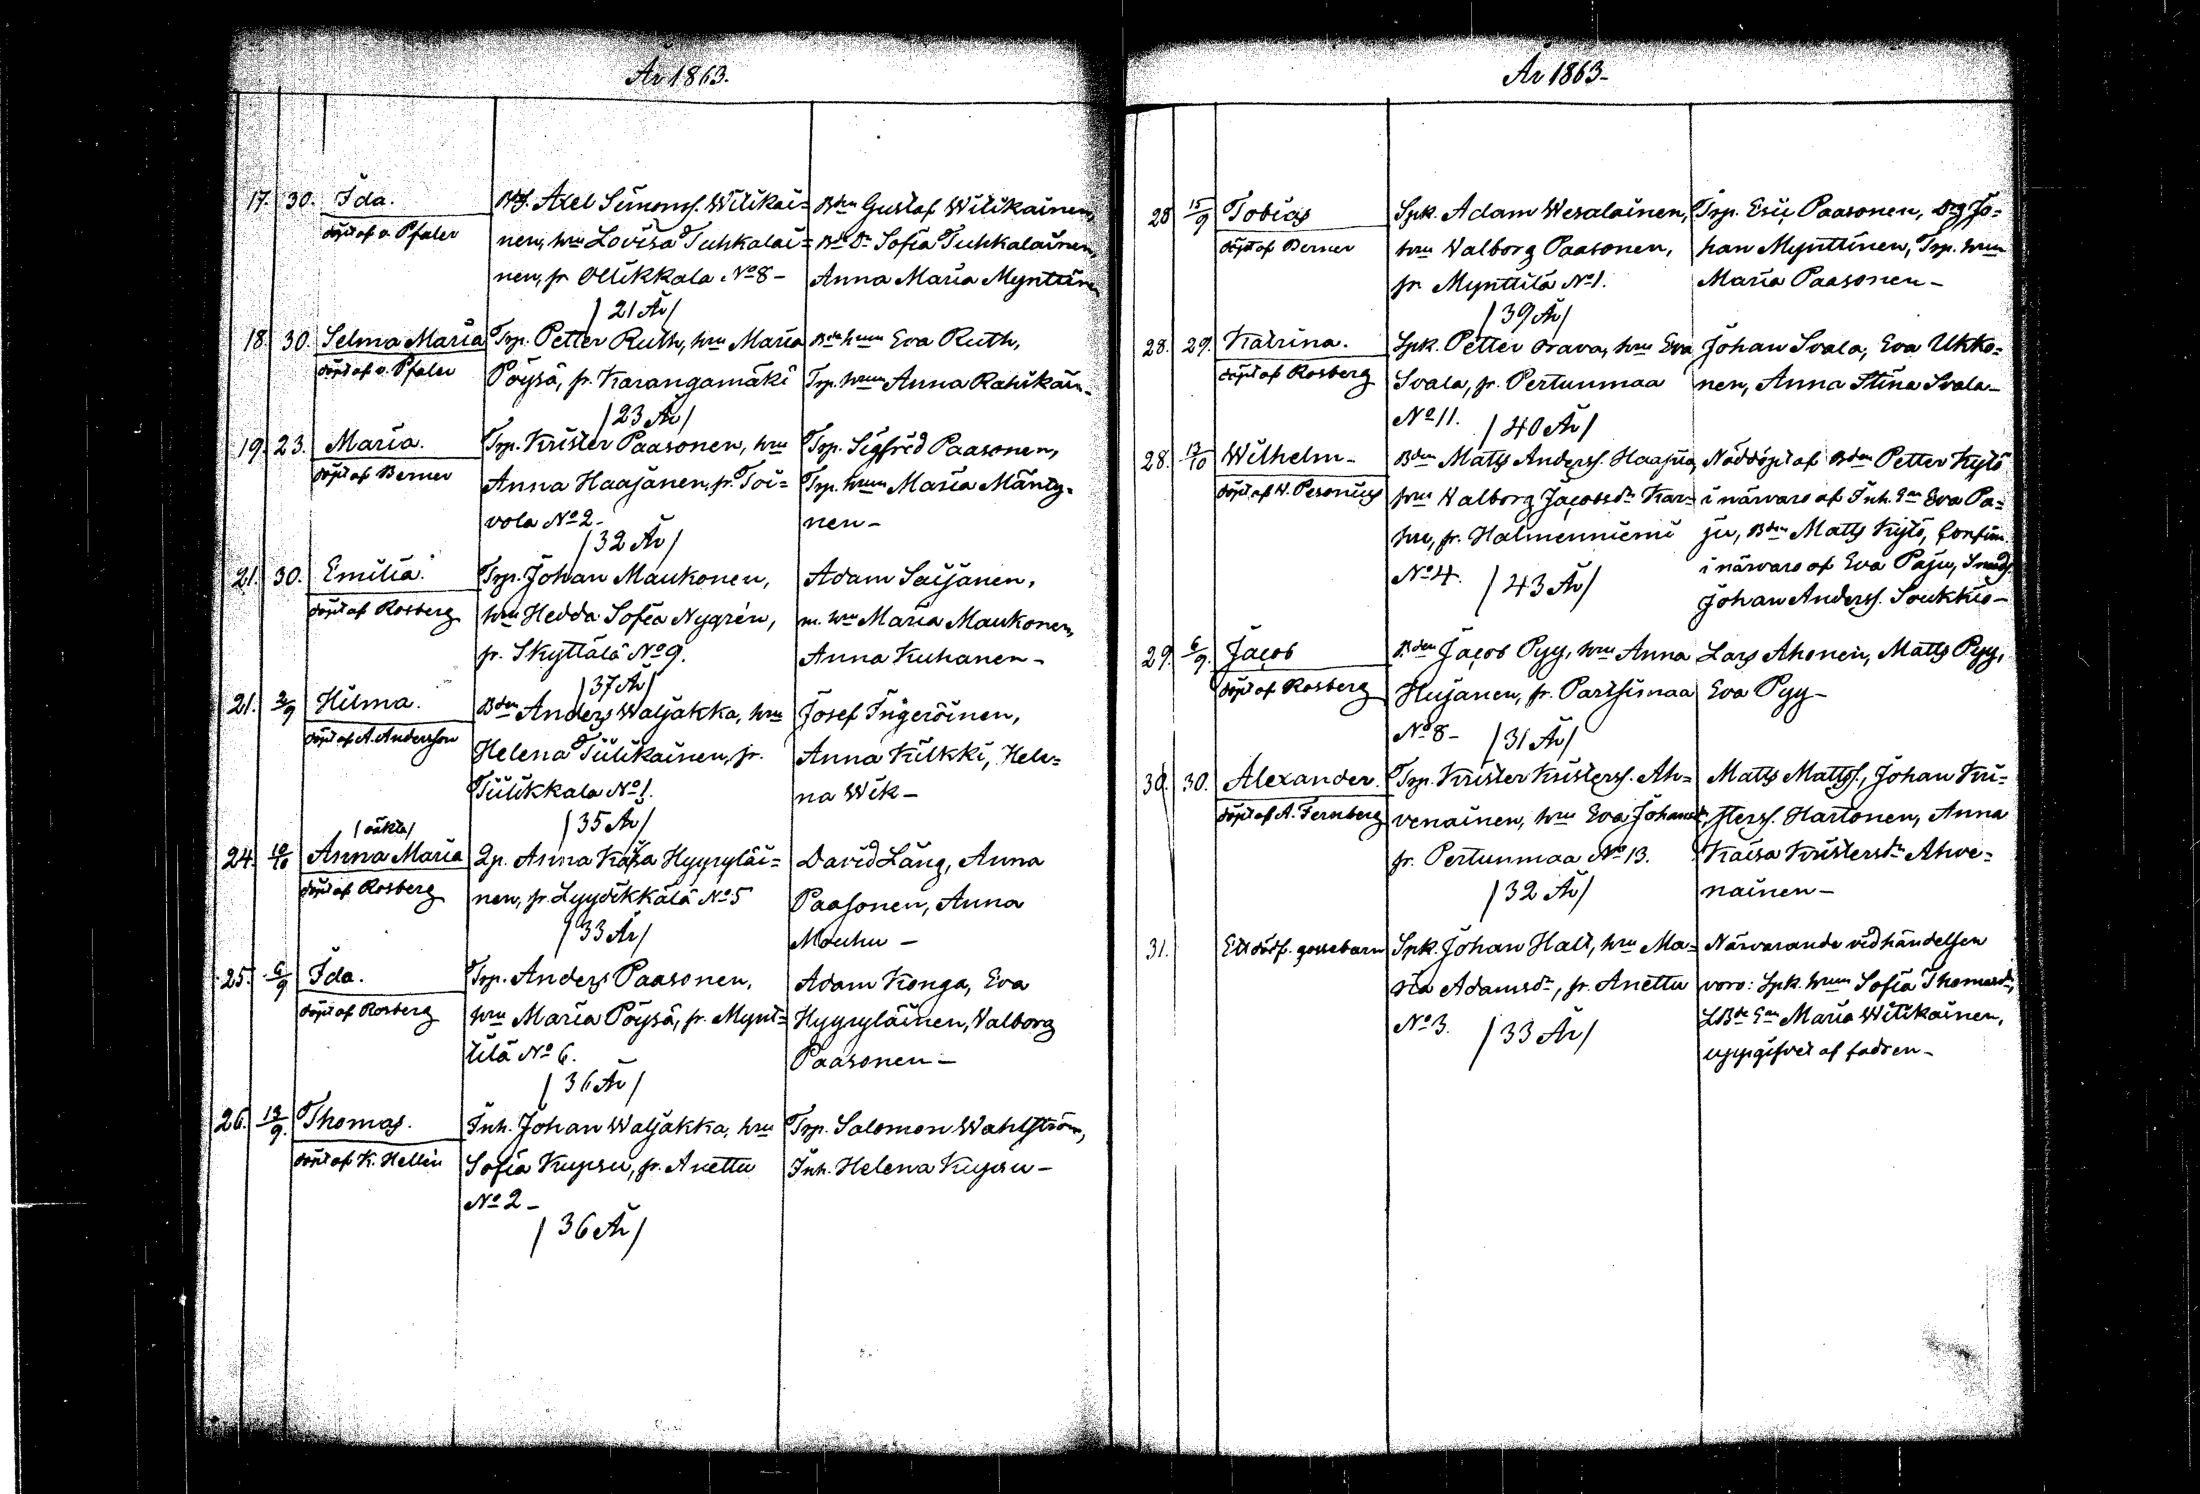 År 1863.
17. 30. Ida. BdS. Axel Simonss. Wilikai=
döpt af v. Pfaler
nen, hru Lovisa Tuhkalai=
nen, fr Ollikkala No 8 -
/21 År/
Bden Gustaf Wilikainen,
Bde Dr Sofia Tuhkalainen,
Anna Maria Mynttinen
18. 30. Selma Maria
döpt af v. Pfaler
Trp. Petter Ruth, hru Maria
Pöysä, fr. Karangamäki
/23 År/
Bde hrun Eva Ruth,
Trp. hrun Anna Rahikain.
19. 23. Maria.
döpt af Berner
Trp. Krister Paasonen, hru
Anna Haajanen, fr. Toi=
vola No 2 -
/32 År/
Trp. Sigfrid Paasonen,
Trp. hrun Maria Mänty=
nen -
21. 30. Emilia.
döpt af Rosberg
Trp. Johan Maukonen,
hru Hedda Sofia Nygrén,
fr. Skyttälä No 9.
/37 År/
Adam Saijanen,
m. hru Maria Maukonen,
Anna Kuhanen -
21. 2/9 Hilma.
döpt af A. Andersson
Bden Anders Waljakka, hru
Helena Tiilikainen, fr.
Tiilikkala No 1.
/35 År/
Josef Ingeröinen,
Anna Kilkki, Hele=
na Wik -
24. 10/10 /oäkta/
Anna Maria
döpt af Rosberg
Qp. Anna Kaisa Hyyryläi=
nen, fr. Lyydikkälä No 5
/33 År/
David Läng, Anna
Paasonen, Anna
Mouhu -
25. 6/9 Ida.
döpt af Rosberg
Trp. Anders Paasonen,
hru Maria Pöysä, fr. Mynt=
tilä No 6.
/36 År/
Adam Konga, Eva
Hyyryläinen, Valborg
Paasonen -
26. 13/9. Thomas.
döpt af K. Hellén
Inh. Johan Waljakka, hru
Sofia Kupsu, fr. Anettu
No 2 -
/36 År/
Trp. Salomon Wahlström,
Inh. Helena Kupsu -
År 1863 -
28 15/9 Tobias
döpt af Berner
Spk. Adam Wesalainen,
hru Valborg Paasonen,
fr Mynttilä No 1.
/39 År/
Trp. Eric Paasonen, Drg Jo=
han Mynttinen, Trp. hrun
Maria Paasonen -
28. 29. Katrina.
döpt af Rosberg
Spk. Petter Orava, hru Eva
Svala, fr. Pertunmaa
No 11. /40 År/
Johan Svala, Eva Ukko=
nen, Anna Stina Svala -
28. 13/10 Wilhelm -
döpt af W. Pesonius
Bden Matts Anderss. Haapia,
hru Valborg Jacobsdr Kar=
hu, fr. Halmenniemi
No 4. /43 År/
Nöddöpt af Bden Petter Kylö
i närvaro af Inh. Gan Eva Pa=
ju, Bden Matts Kylö, Confirm.
i närvaro af Eva Paju,
Johan Anderss. Soukkio -
29. 6/9. Jacob
döpt af Rosberg
Bden Jacob Pyy, hru Anna
Hujanen, fr. Partsimaa
No 8 - /31 År/
Lars Ahonen, Matts Pyy,
Eva Pyy -
30. 30. Alexander.
döpt af A. Fernberg
Trp. Krister Kristerss. Ah=
venainen, hru Eva Johansdr
fr. Pertunmaa No 13.
/32 År/
Matts Mattss., Johan Kri=
sterss. Hartonen, Anna
Kaisa Kristersdr Ahve=
nainen -
31. Ett dödf. gossebarn
Spk. Johan Hall, hru Ma=
ria Adamsdr, fr. Anettu
No 3. /33 År/
Närvarande vid händelsen
voro: Spk. hrun Sofia Thomasdr,
LBde Gan Maria Wilikainen,
uppgifvet af fadren -